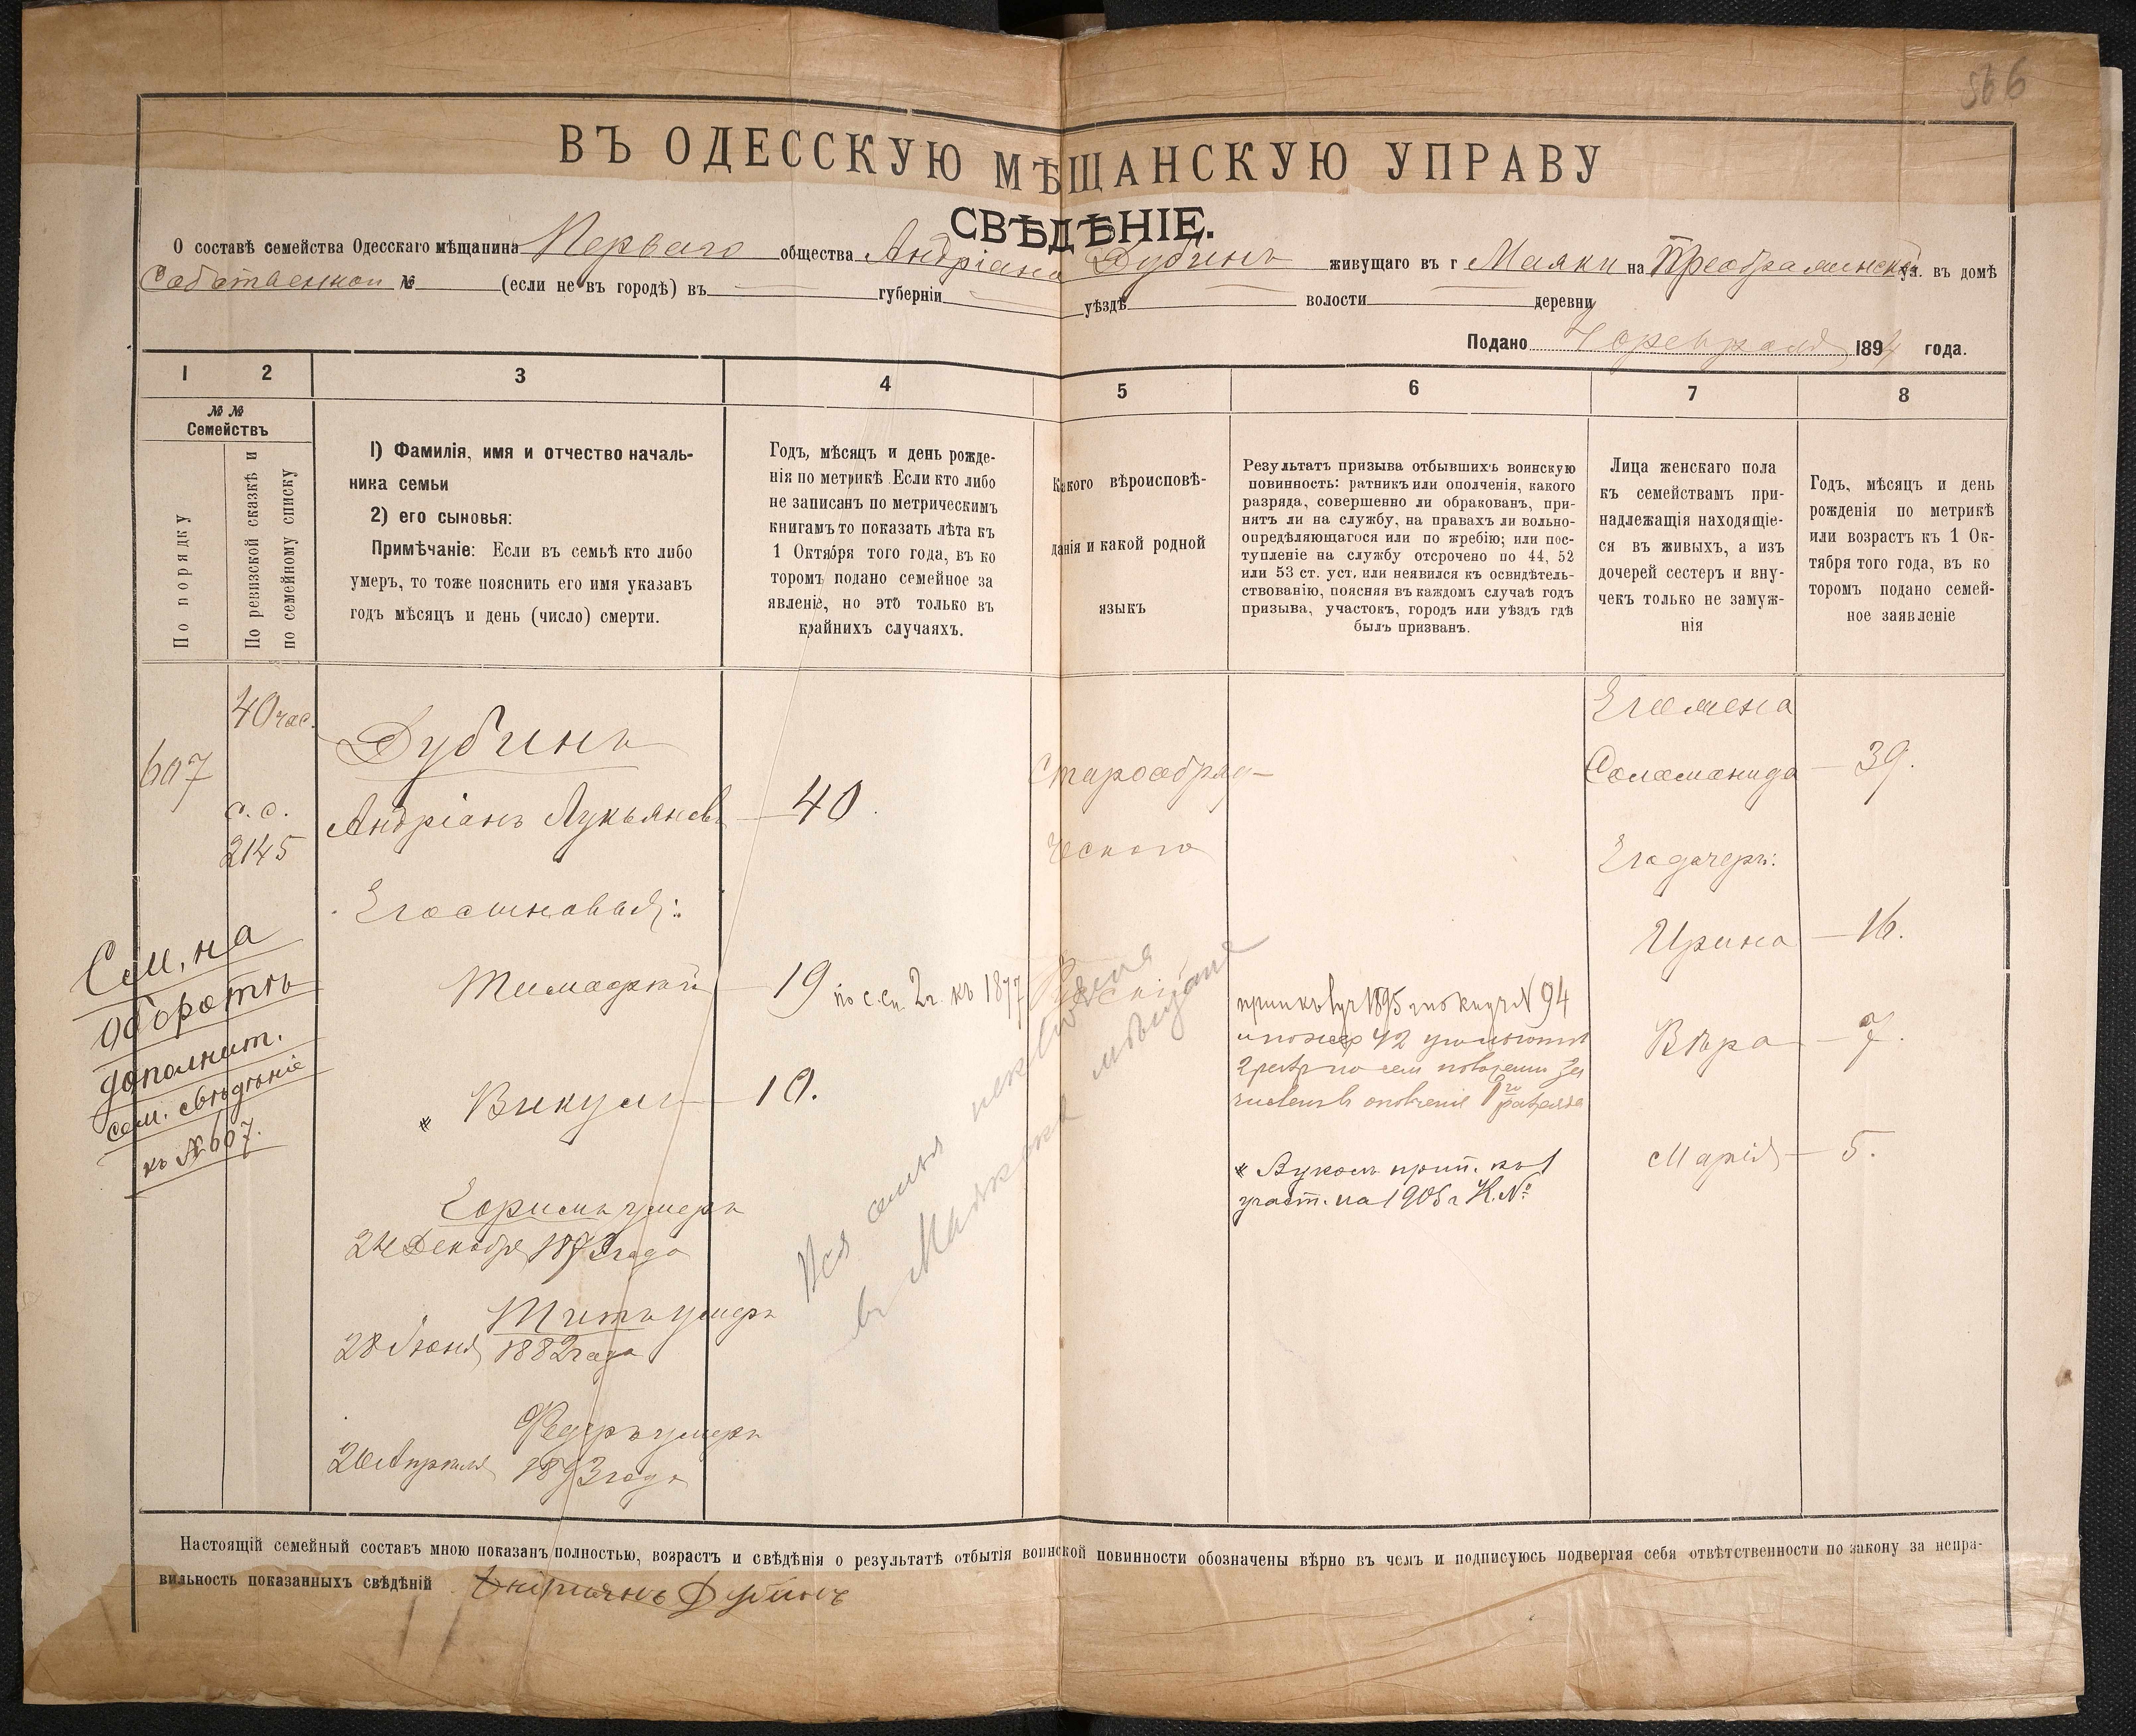 566
ВЪ ОДЕССКУЮ МѢЩАНСКУЮ УПРАВУ
СВѢДѢНІЕ.
О составѣ семейства Одесскаго мѣщанина Перваго общества Андріана Дубинъ живущаго въ г Маяки на Преображенской ул. въ домѣ
Собственном № (если не въ городѣ) въ губерніи уѣздѣ волости деревни
Подано Февраля 1894 года.
1 2 3 4 5 6 7 8
№ №
Семействъ
По порядку
По ревизской сказкѣ и
по семейному списку
1) Фамилія, имя и отчество началь-
ника семьи
2) его сыновья:
Примѣчаніе: Если въ семьѣ кто либо
умеръ, то тоже пояснить его имя указавъ
годъ мѣсяцъ и день (число) смерти.
Годъ, мѣсяцъ и день рожде-
нія по метрикѣ. Если кто либо
не записанъ по метрическимъ
книгамъ то показать лѣта къ
1 Октября того года, въ ко
торомъ подано семейное за
явленіе, но это только въ
крайнихъ случаяхъ.
Какого вѣроисповѣ-
данія и какой родной
языкъ
Результатъ призыва отбывшихъ воинскую
повинность: ратникъ или ополченія, какого
разряда, совершенно ли обракованъ, при-
нятъ ли на службу, на правахъ ли вольно-
опредѣляющагося или по жребію; или пос-
тупленіе на службу отсрочено по 44, 52
или 53 ст. уст. или неявился къ освидѣтель-
ствованію, поясняя въ каждомъ случаѣ годъ
призыва, участокъ, городъ или уѣздъ гдѣ
былъ призванъ.
Лица женскаго пола
къ семействамъ при-
надлежащія находящіе-
ся въ живыхъ, а изъ
дочерей сестеръ и вну-
чекъ только не замуж-
нія
Годъ, мѣсяцъ и день
рожденія по метрикѣ
или возрастъ къ 1 Ок-
тября того года, въ ко
торомъ подано семей-
ное заявленіе
607
40 час.
с. с.
2145
Дубинъ
Андріанъ Лукьяновъ 40.
Старообряд-
ческого
Его жена
Соломонида 39.
Его сыновья:
Его дочери:
Тимофей 19 по с. сп. 2 г. къ 1877
Рускій
Ирина 16.
Викулъ 10.
1895 № 94
42
Вѣра 7.
Марія 5.
Вуколъ прип. къ 1
участ. на 1905 г К. №
Ефимъ умеръ
24 Декабря 1893 года
Титъ умеръ
28 Июня 1882 года
Федоръ умеръ
20 Апреля 1893 года
См. на
оборотѣ
дополнит.
сем. свѣдѣніе
къ № 607.
Вся семья
в Маяках мѣщане
Настоящій семейный составъ мною показанъ полностью, возрастъ и свѣдѣнія о результатѣ отбытія воинской повинности обозначены вѣрно въ чемъ и подписуюсь подвергая себя отвѣтственности по закону за непра-
вильность показанныхъ свѣдѣній Дубинъ